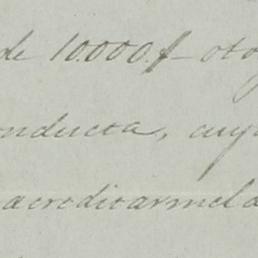 de 10.000 f oto
onducta, cuy
acreditarmela